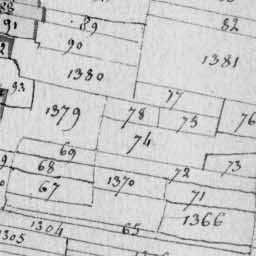 88
91 89 82
90
1380 1381
93
77
1379 78 75 76
74
69
68 72 73
67 1370 71
1366
1304 65
1305